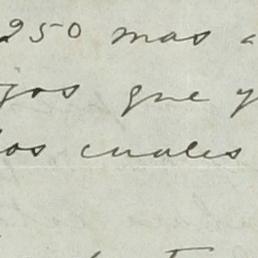 250 mas a
jos que y
los cuales